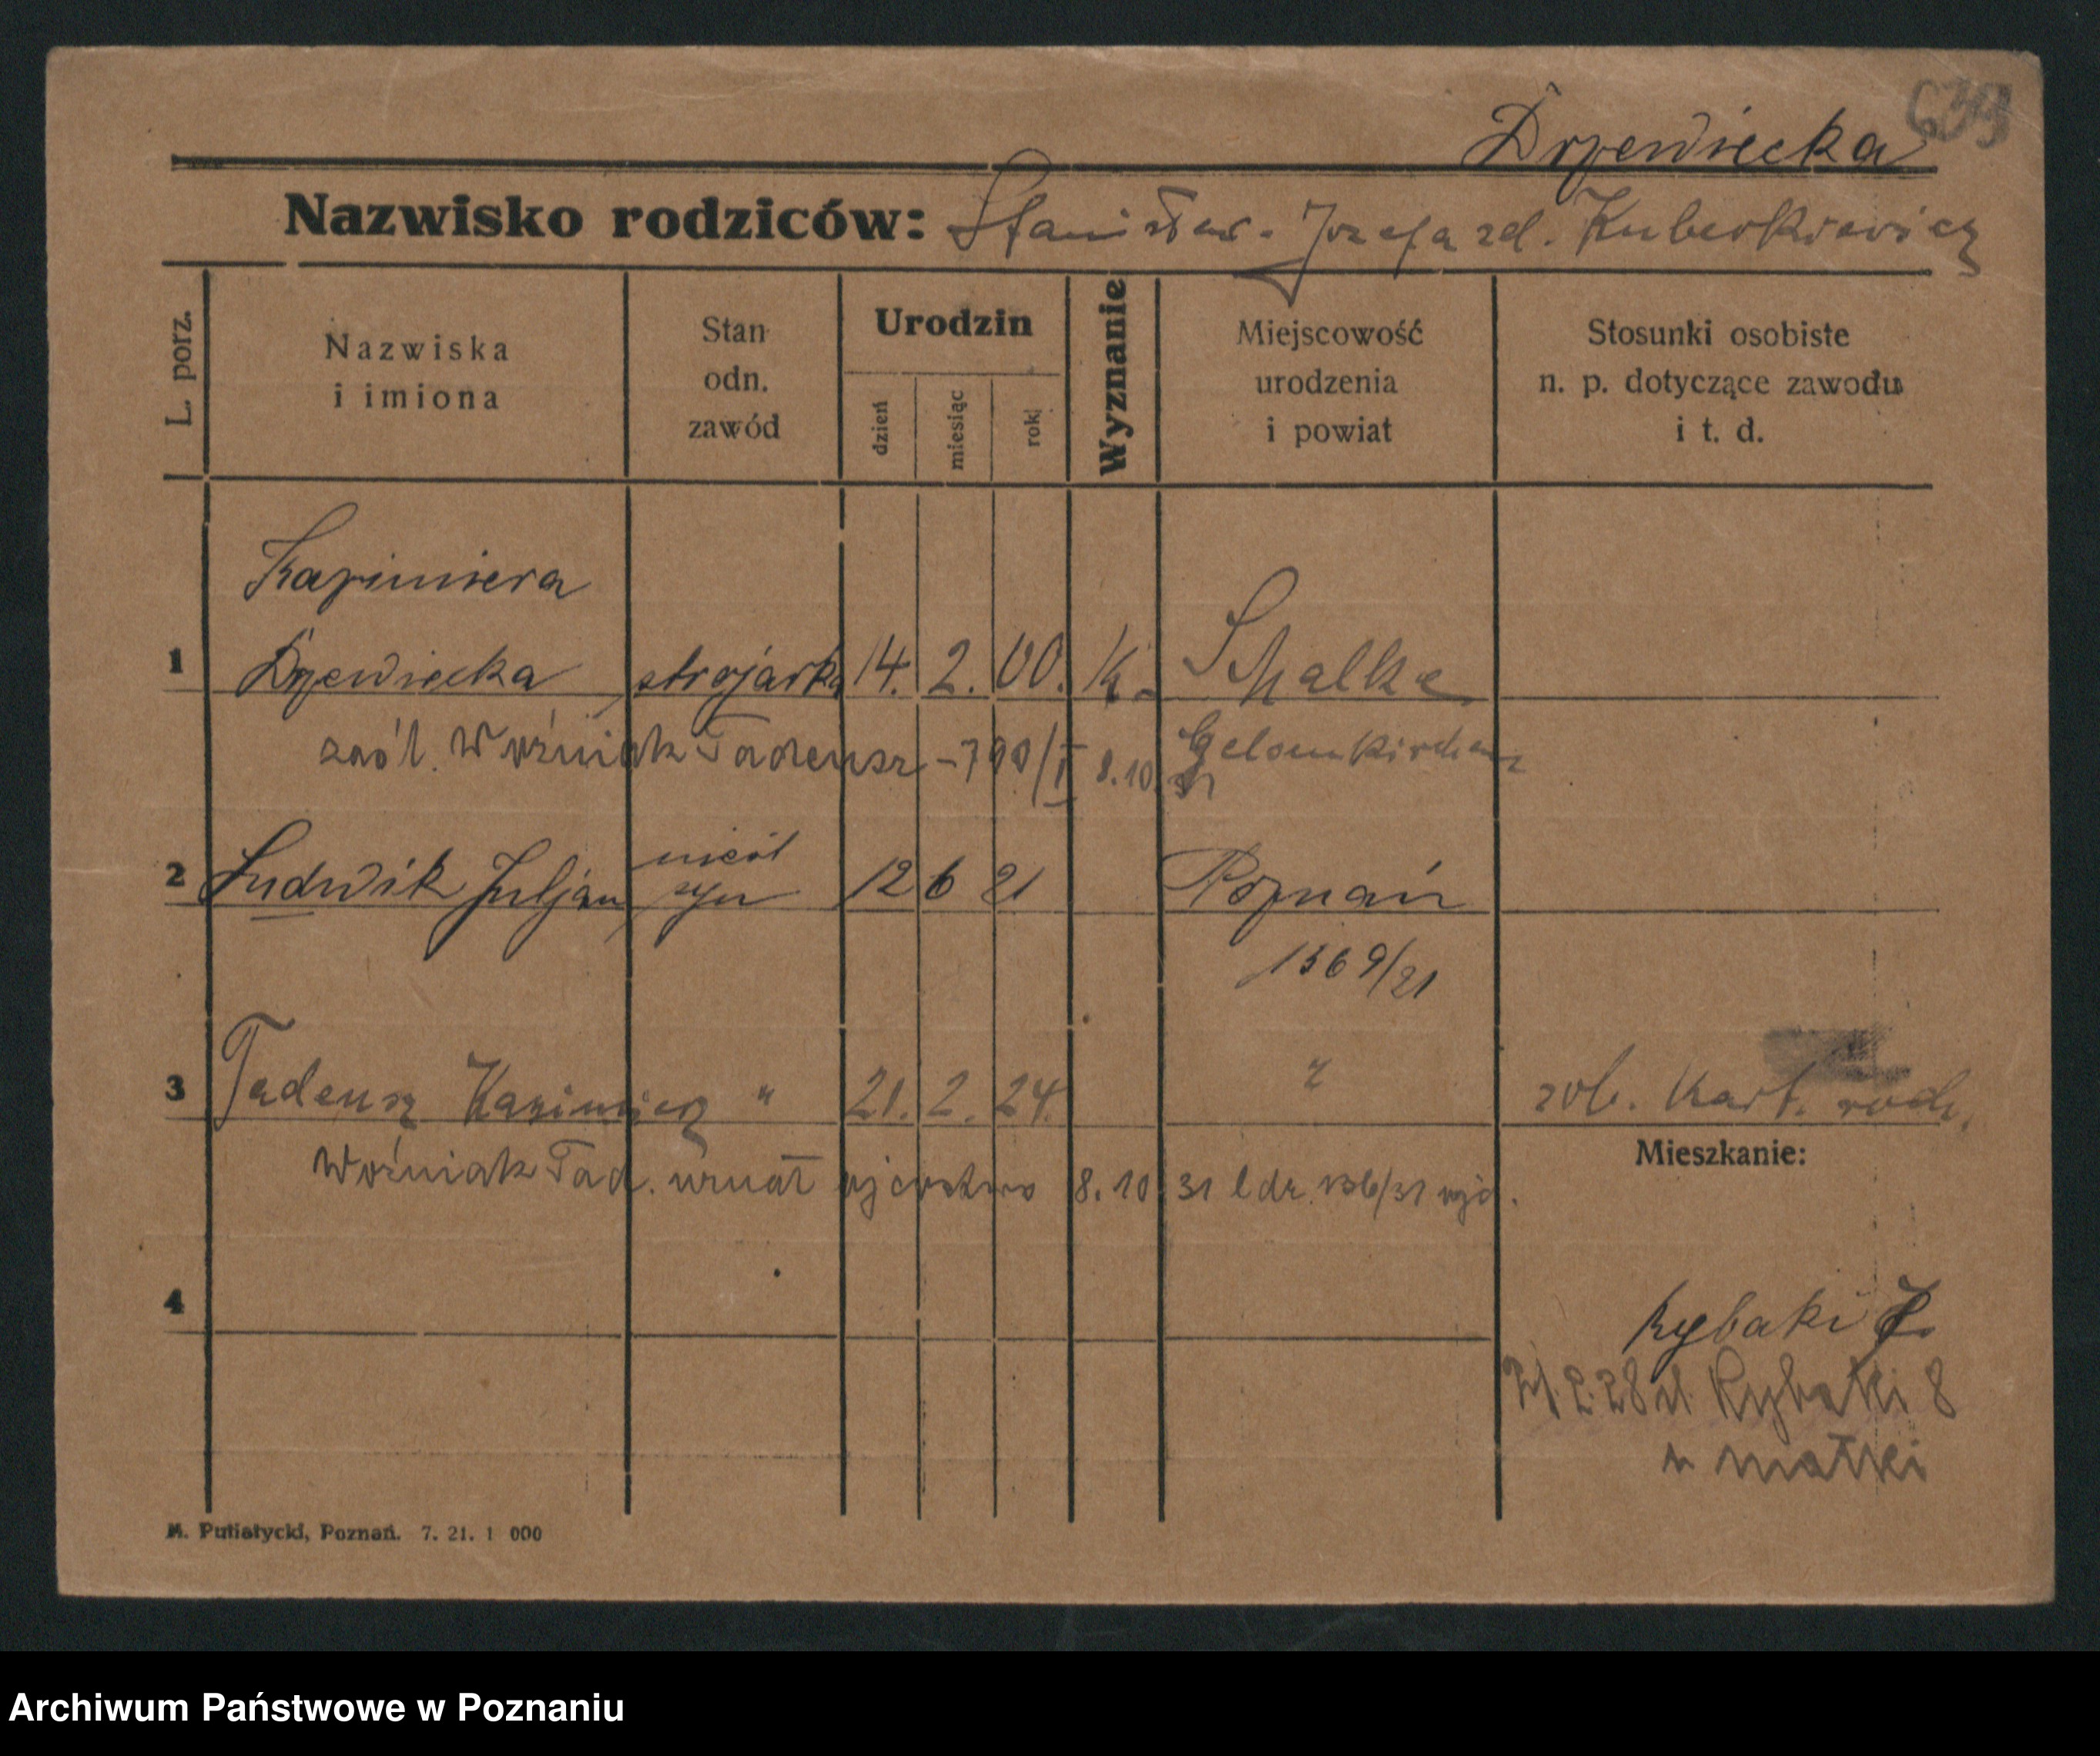 639
Drzewiecka
Nazwisko rodziców: Stanisław - Jozefa zd.
L. porz.
Nazwiska i imiona
Stan odn. zawód
Urodzin
dzień
miesiąc
rok
Wyznanie
Miejscowość urodzenia i powiat
Stosunki osobiste n. p. dotyczące zawodu i t. d.
Kazimiera
1 Drzewiecka strojarka 14. 2. 00. K. Schalke
zaśl. Woźniak Tadeusz - 8.10. 31
2 Ludwik Juljan nieśl syn 12 6 21 Poznań
1369/21
3 Tadeusz Kazimierz " 21. 2. 24. " zob. Kart. rodz.
Mieszkanie:
Woźniak Tad. uznał ojcostwo 8.10 31
4
Rybaki
Rybaki 8
u matki
M. Putiatycki, Poznań. 7. 21. 1 000
Archiwum Państwowe w Poznaniu